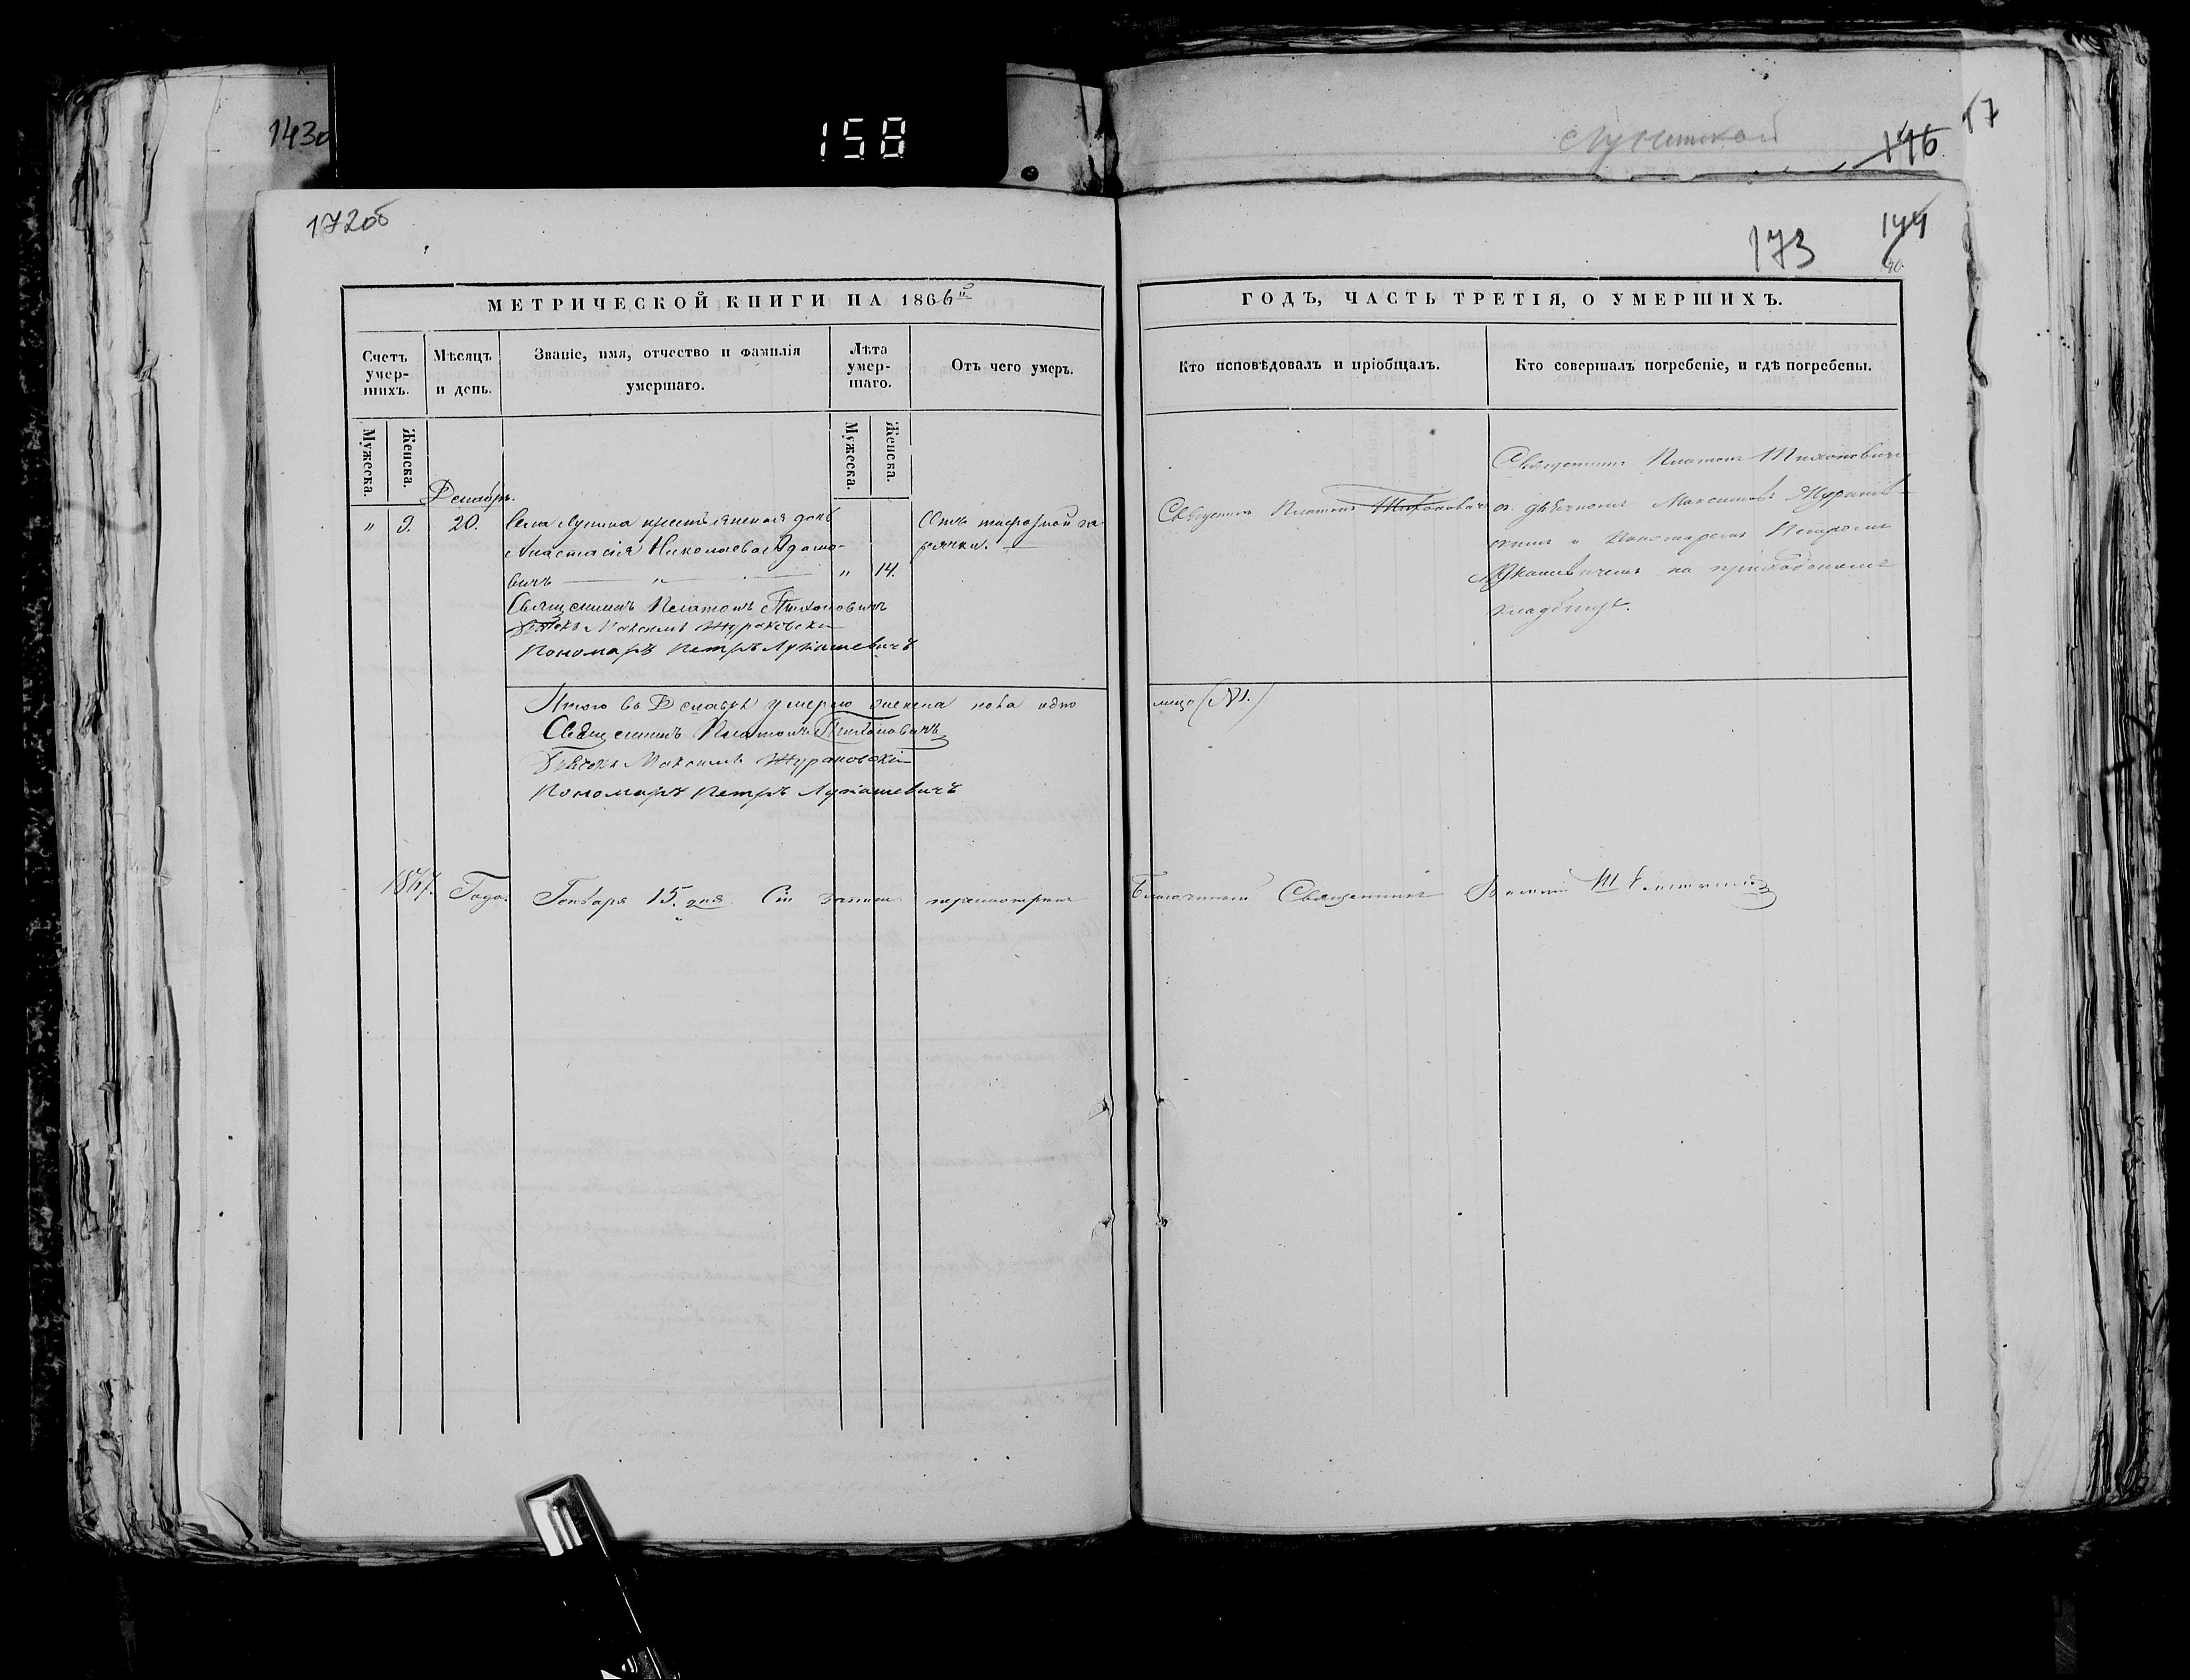 143о
158
Лунинской
146
17
172об
173
144
МЕТРИЧЕСКОЙ КНИГИ НА 1866й
ГОДЪ, ЧАСТЬ ТРЕТІЯ, О УМЕРШИХЪ.
Счетъ умер-шихъ.
Мѣсяцъ и день.
Званіе, имя, отчество и фамилія умершаго.
Лѣта умер-шаго.
Отъ чего умеръ.
Кто исповѣдовалъ и пріобщалъ.
Кто совершалъ погребеніе, и гдѣ погребены.
Мужеска.
Женска.
Мужеска.
Женска.
Декабрь.
" 9. 20.
Села Лунина крестьянская дочь
Анастасія Николаева Адамо-
вичъ " "
14.
Священникъ Платонъ Тихоновичъ
Дьячекъ Максимъ Жураковскій
Пономарь Петръ Лукашевичъ
Отъ нервозной го
рячки.
Священникъ Платонъ Тихоновичъ
Священникъ Платонъ Тихоновичъ
съ дьячкомъ Максимомъ Жураков-
скимъ и Пономаремъ Петромъ
Лукашевичемъ на приходскомъ
кладбищѣ.
Итого въ Декабрѣ умерло женска пола одно
лицо (№1.)
Священникъ Платонъ Тихоновичъ
Дьячекъ Максимъ Жураковскій
Пономарь Петръ Лукашевичъ
1867. Года. Генваря 15. дня Сіи записи
Благочинный Священникъ